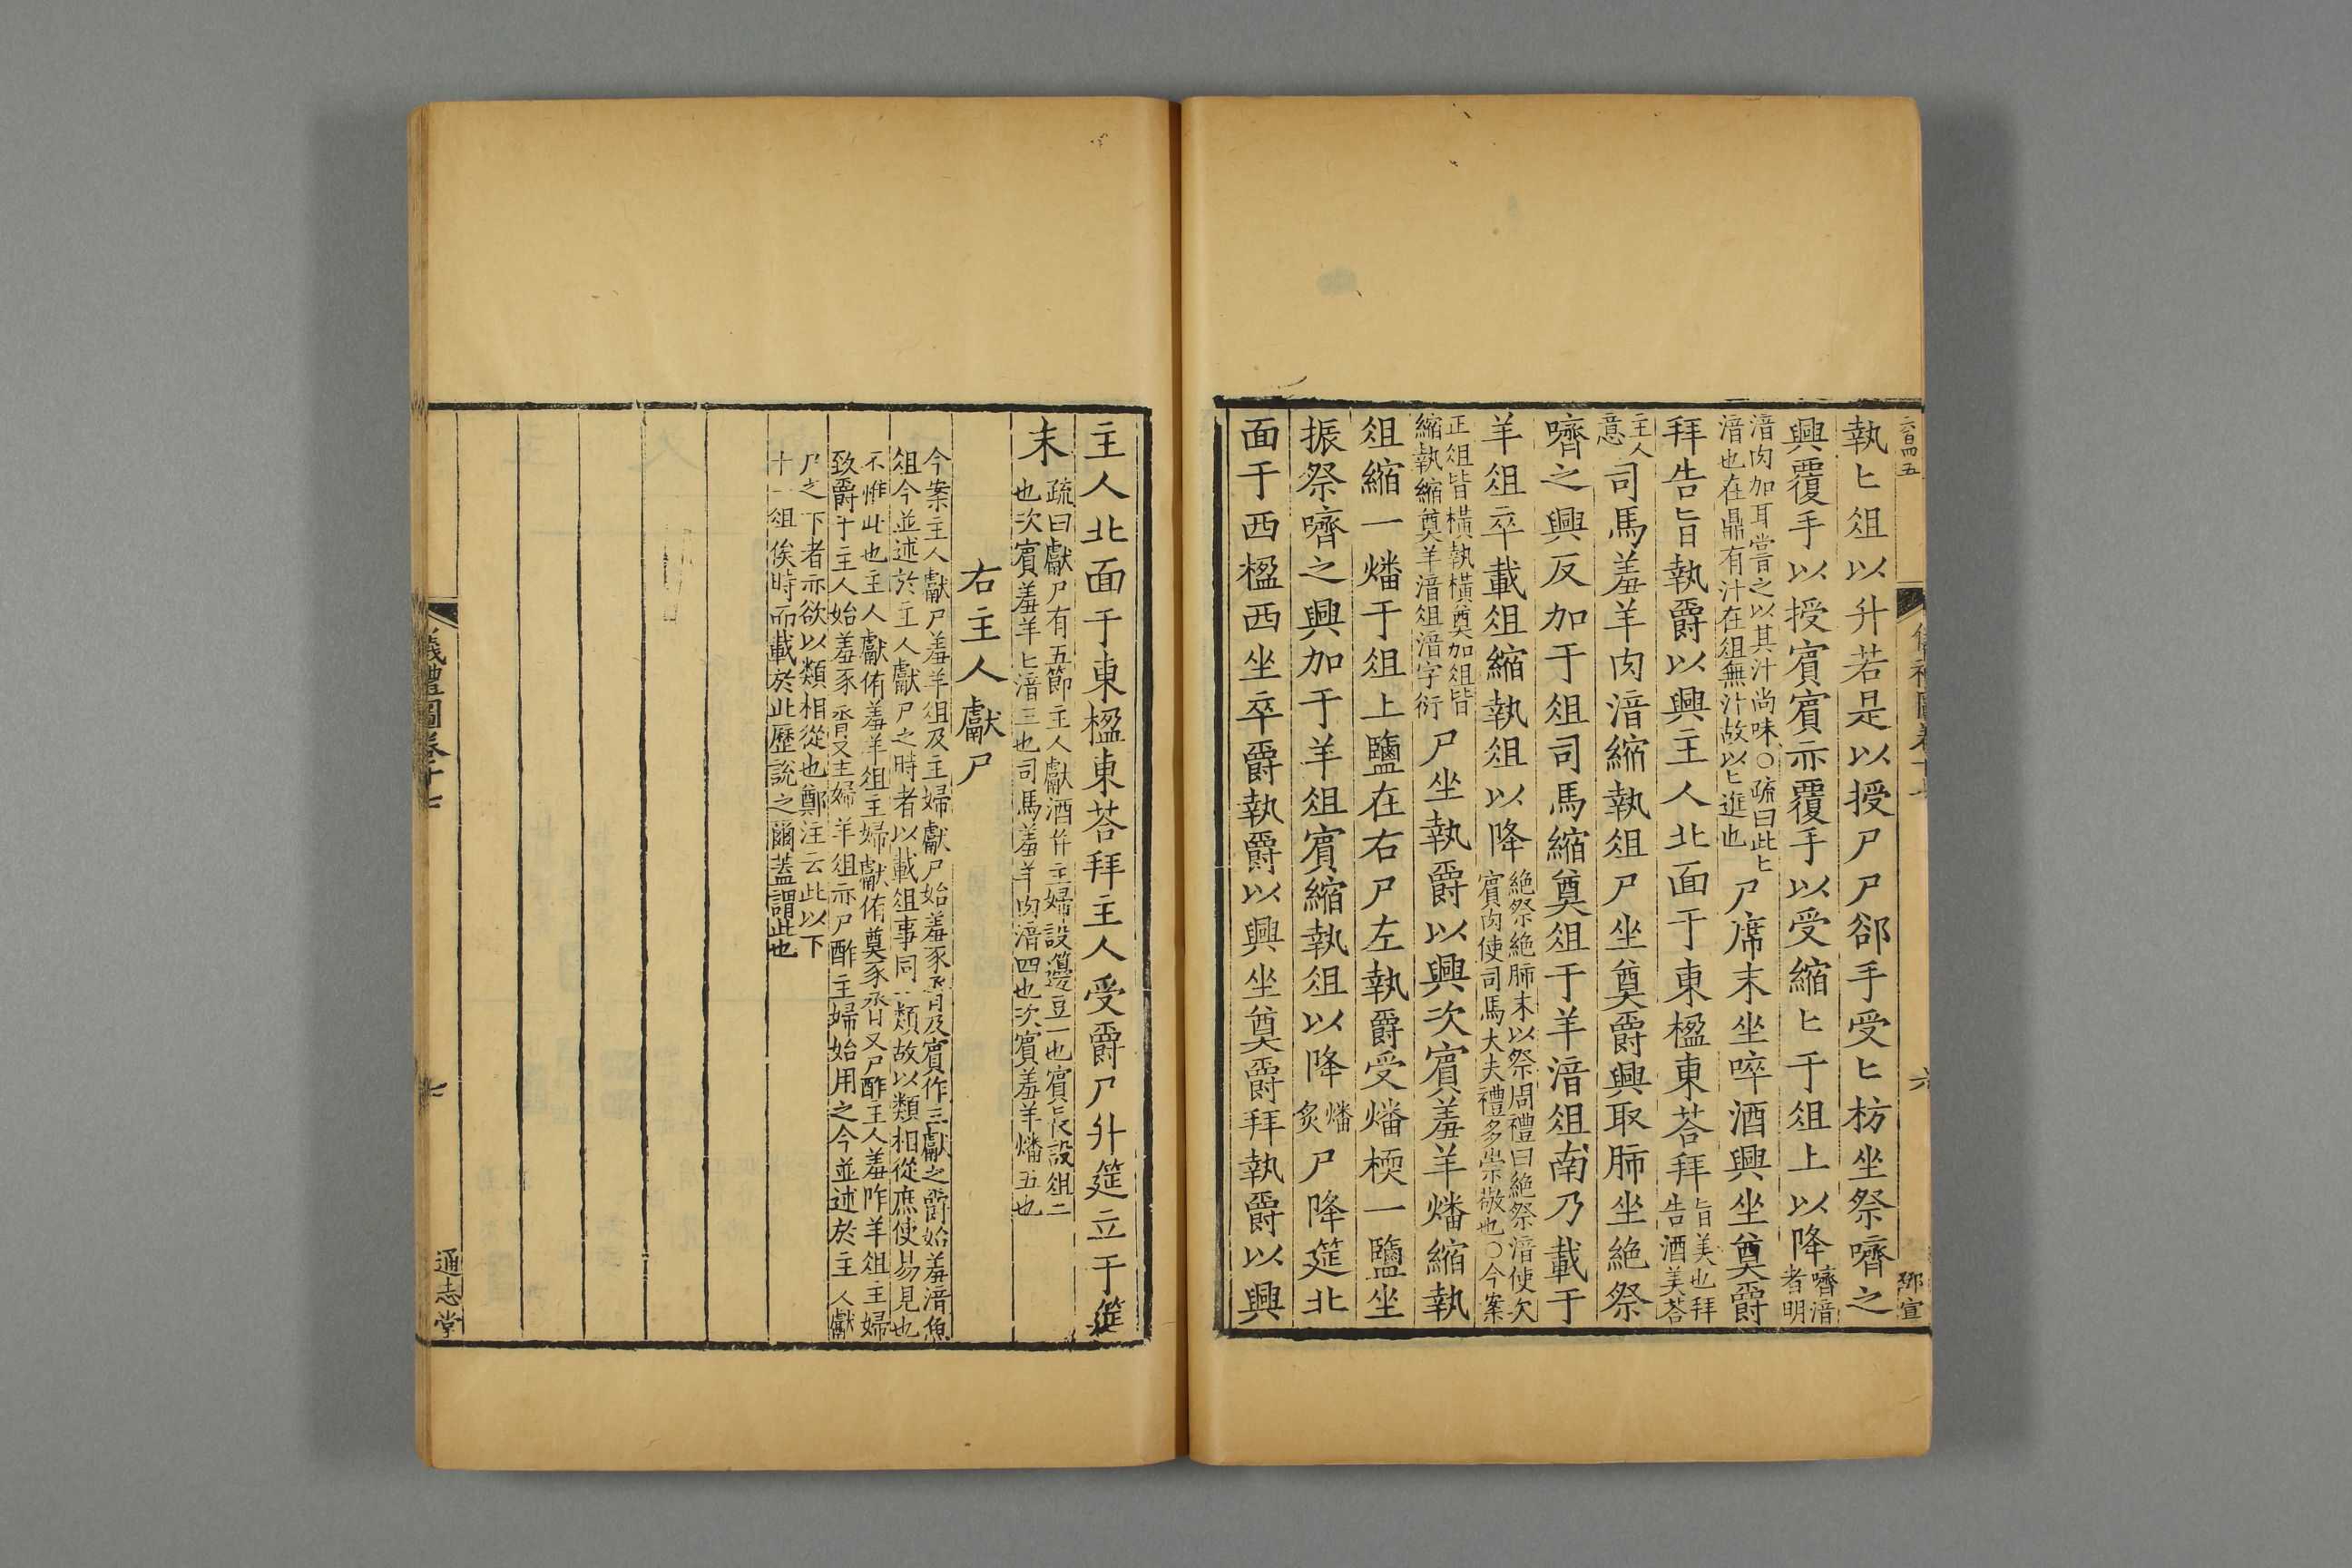 六百四五
六
鄧宣
執匕俎以升若是以授尸尸郤手受匕枋坐祭嚌之
興覆手以授賓賓亦覆手以受縮匕于俎上以降嚌湇者明
湇肉加耳嘗之以其汁尚味○疏曰此匕湇也在鼎有汁在俎無汁故以匕進也尸席末坐啐酒興坐奠爵
拜告旨執爵以興主人北面于東楹東荅拜旨美也拜告酒美荅
主人意司馬羞羊肉湇縮執俎尸坐奠爵興取肺坐絶祭
嚌之興反加于俎司馬縮奠俎于羊湇俎南乃載于
羊俎卒載俎縮執俎以降絶祭絶肺末以祭周禮曰絶祭湇使次賓肉使司馬大夫禮多崇敬也○今案
正俎皆橫執橫奠加俎皆縮執縮奠羊湇俎湇字衍尸坐執爵以興次賓羞羊燔縮執
俎縮一燔于俎上鹽在右尸左執爵受燔㨎一鹽坐
振祭嚌之興加于羊俎賓縮執俎以降燔炙尸降筵北
面于西楹西坐卒爵執爵以興坐奠爵拜執爵以興
主人北面于東楹東荅拜主人受爵尸升筵立于筵
末疏曰獻尸有五節主人獻酒幷主婦設籩豆一也賓長設俎二也次賓羞羊匕湇三也司馬羞羊肉湇四也次賓羞羊燔五也
右主人獻尸
今案主人獻尸羞羊俎及主婦獻尸始羞豕脀及賓作三獻之爵始羞湇魚
俎今並述於主人獻尸之時者以載俎事同一類故以類相從庶使易見也
不惟此也主人獻侑羞羊俎主婦獻侑奠豕脀又尸酢主人羞阼羊俎主婦
致爵于主人始羞豕脀又主婦羊俎亦尸酢主婦始用之今並述於主人獻
尸之下者亦欲以類相從也鄭注云此以下
十一俎俟時而載於此歷說之爾蓋謂此也
儀禮圖卷十七
七
通志堂